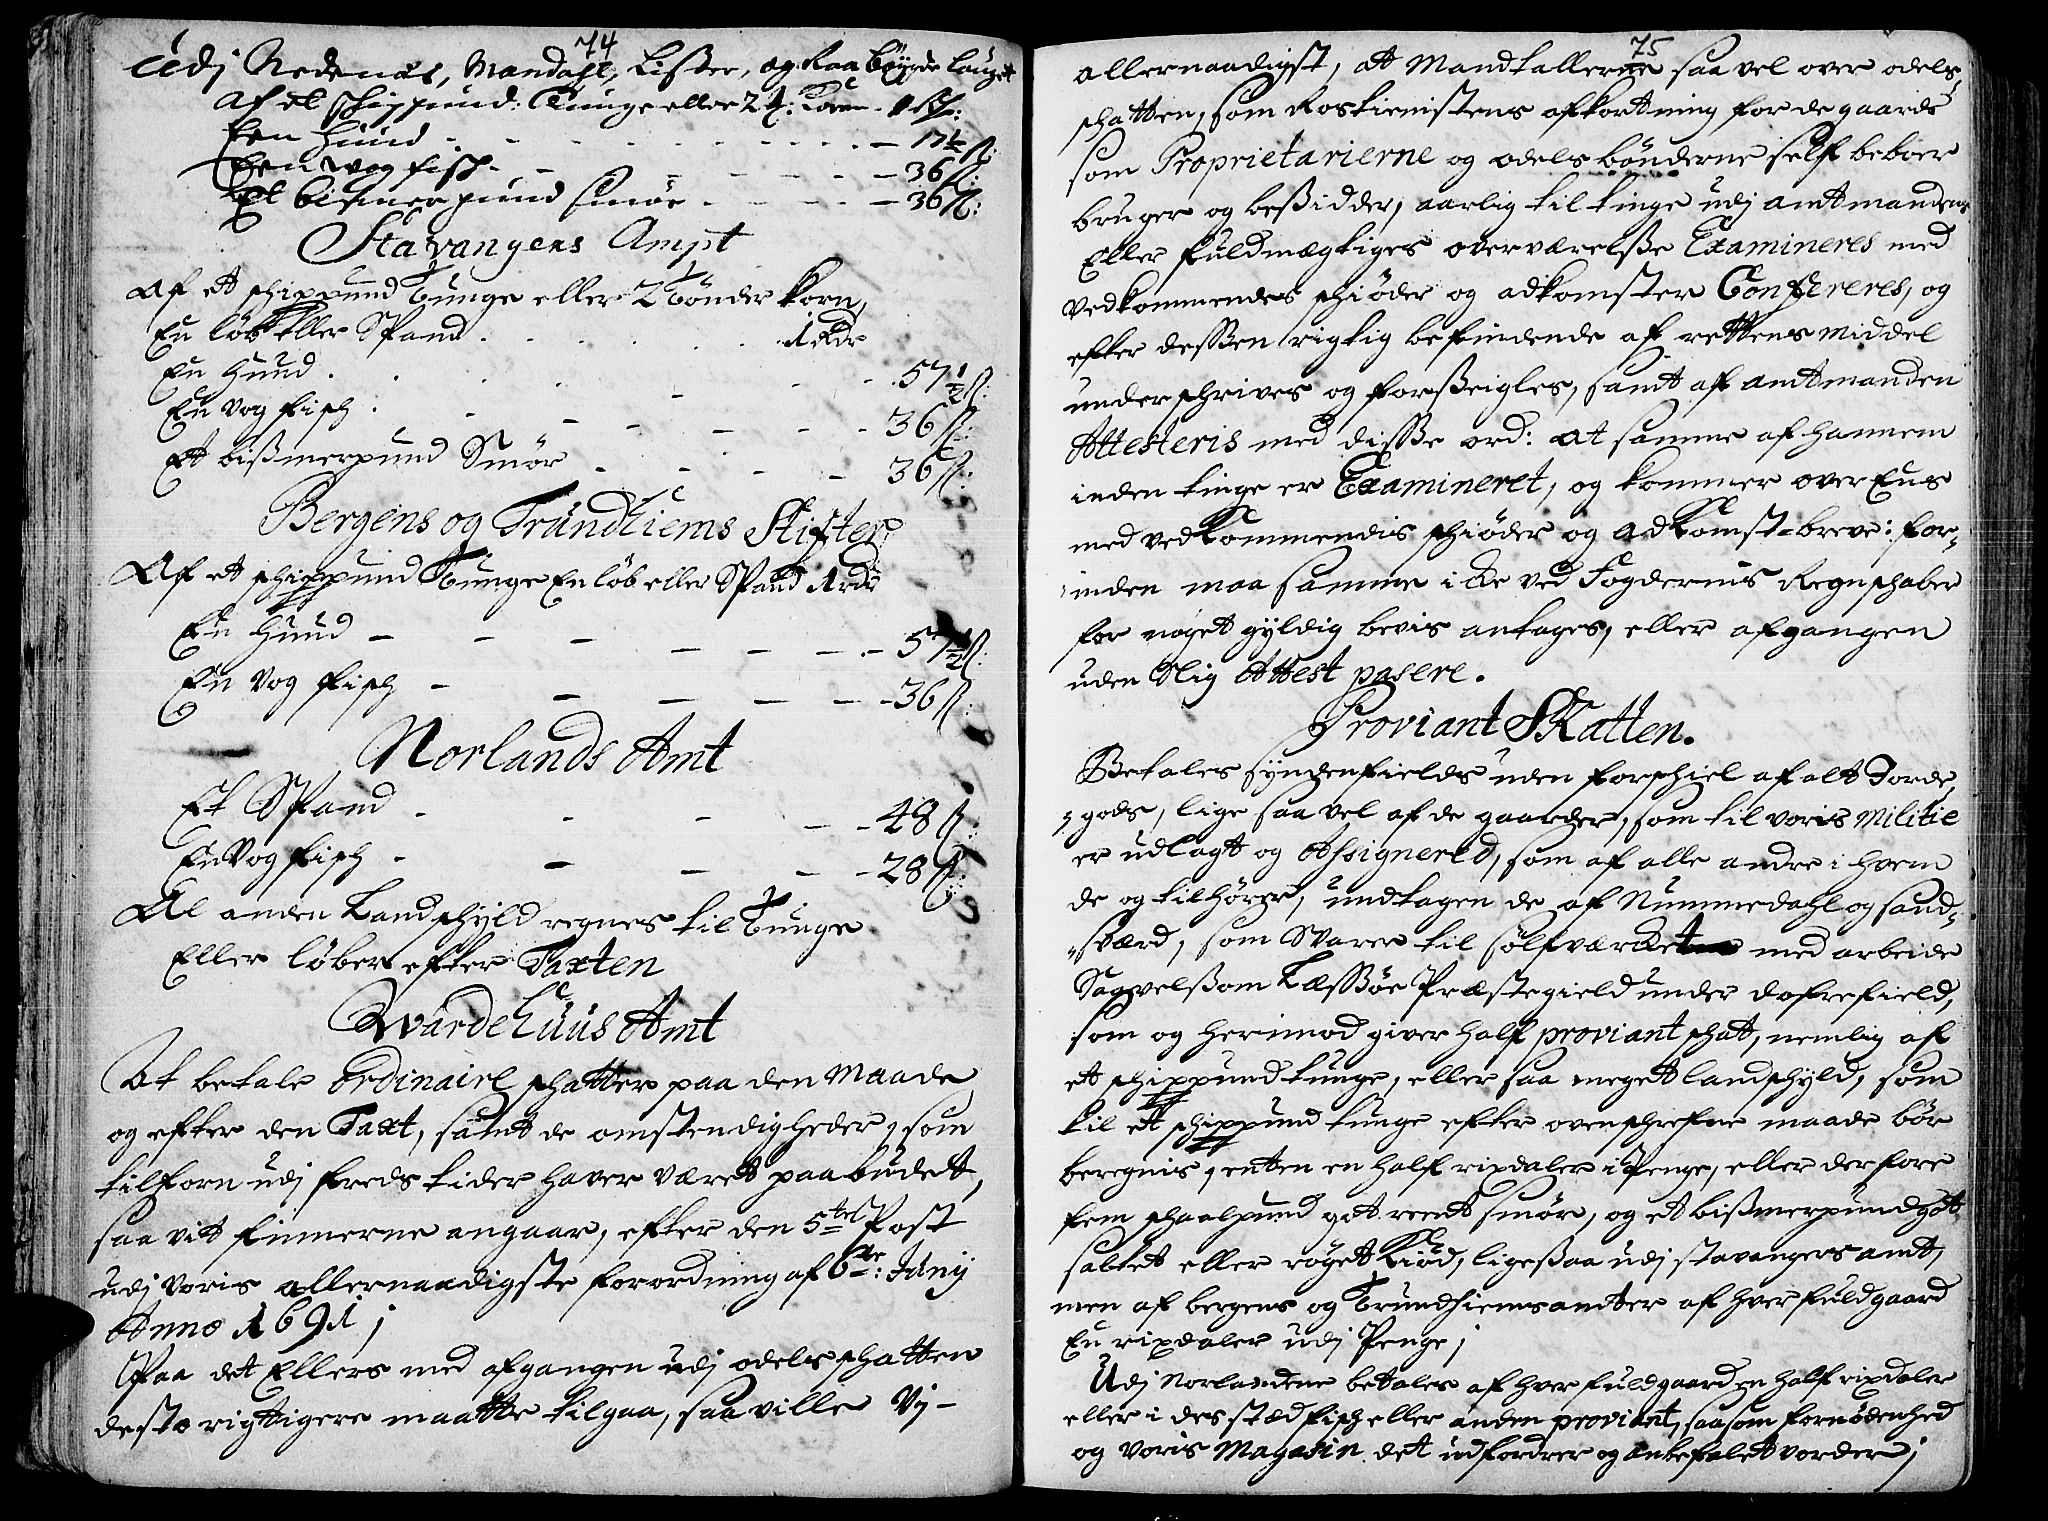 74
Udj Nedenæs, Mandahl, Lister, og Raabøygde lauget
Af et schippund: Tunge eller 2 t: Korn - 1 Rdr:
Een Huud - - - 17½ ß:
Een vog fisch - - - 36 ß:
Et bismerpund Smør - - - 36 ß:
Stavangers Ampt
Af et schippund Tunge eller 2 tønder korn,
En løb Eller Spand . . . 1 Rdr
En Huud . . . 57½ ß:
En Vog fisch . - - 36 ß:
Et bißmerpund Smør - - - 36 ß:
Bergens og Trundhiems Stifter
Af et schippund Tunge En løb eller Spand 1 rdr
En Huud - - - 57½ ß:
En Vog fisch - - - 36 ß:
Norlands Amt
Et Spand - - - 48 ß:
En Vog fisch - - - 28 ß:
Al anden Landschyld regnes til Tunge
Eller løber efter Taxten
Wardehuus Amt
At betale Ordinaire schatter paa den Maade
og efter den Taxt, samt de omstendigheder, som
tilforn udj freds tider haver været paabudet,
saa vit finnerne angaar, efter den 5te Post
udj Voris allernaadigste forordning af 6te: Junij
Anno 1691;
Paa det Ellers med afgangen udj odelsschatten
desto rigttigere maatte tilgaa, saa ville Vj-
75
allernaadigst, at Mandtallerne saa vel over odels-
schatten, som Rostienistens afkortning for de gaarde
som Proprietarierne og odelsbønderne self beboer
bruger og beßidder, aarlig til tinge udj amtmandens
Eller fuldmægtiges overværelße Examineres med
vedkommendes schiøder og adkomster Confereres, og
efter dessen rigtig befindende af rettens middel
underschrives og forßeigles, samt af amtmanden
Attesteris med disse ord: at samme af hannem
inden tinge er Examineret, og kommer over Eens
med vedKommendis schiøder og adKomst-breve: for-
inden maa samme icke ved Fogdernis Regnschaber
for noget gyldig bevis antages, eller afgangen
uden slig Attest pasere.
Proviant Skatten.
Betales syndenfields uden forschiel af alt Jorde-
gods, lige saa vel af de gaarder, som til voris Militie
er udlagt og Assignered, som af alle andre i hvem
de og tilhører, undtagen de af Nummedahl og Sand-
sværd, som Svarer til sølfværcket med arbeide
Saavelßom Læssøe Præstegield under dofrefield,
som og herimod giver half proviant schat, nemlig af
et schippund tunge, eller saa meget landschyld, som
til et schippund tunge efter ovenschrefne maade bør
beregnis, enten en half rixdaler i Penge, eller derfore
fem schaalpund got reent smør, og et bißmerpund got
saltet eller røget Kiød, ligeßaa udj stavangers amt,
men af bergens og Trundhiems amter af hver fuldgaard
En rixdaler udj Penge;
Udj Norlandene betales af hver fuldgaard en half rixdaler
eller i des stæd fisch eller anden proviant, saasom fornødenhed
og voris Magasin det udfordrer og anbefalet vorder;